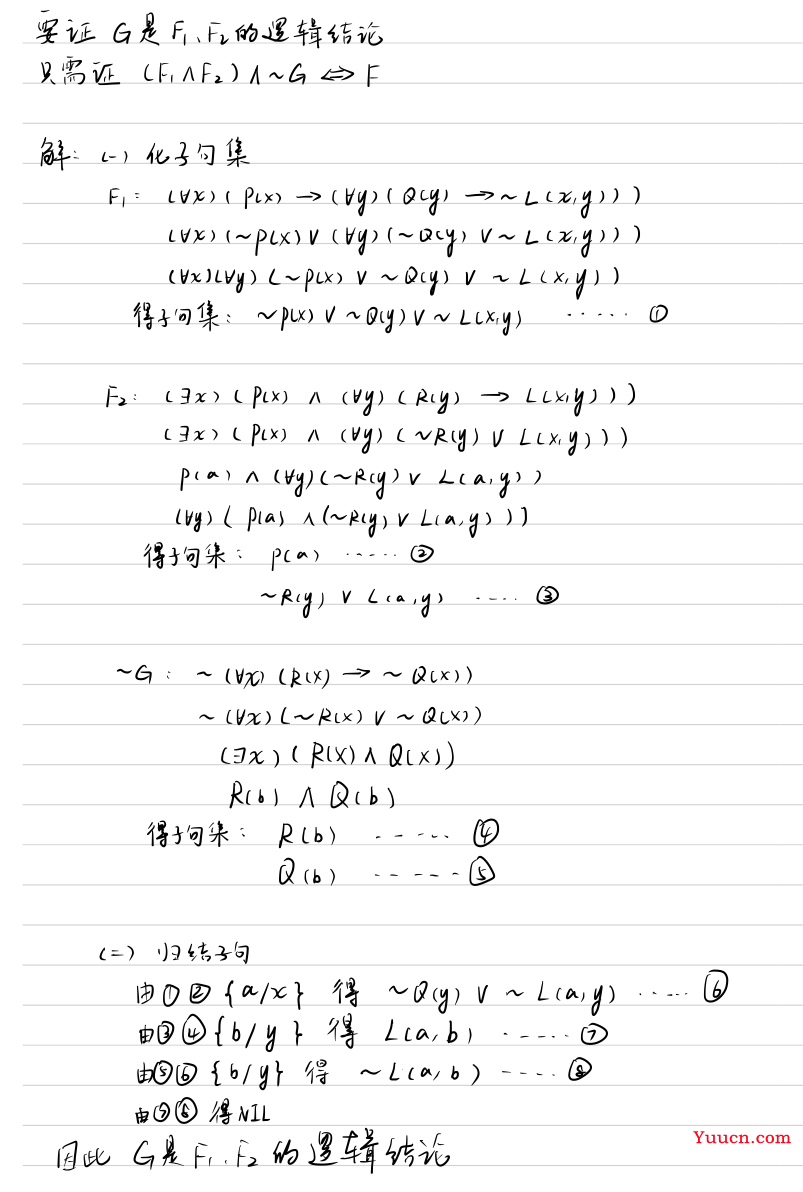 要证 G是 F₁、F₂的逻辑结论
只需证 (F₁∧F₂)∧~G ⇔ F
解: (一) 化子句集
F₁: (∀x)(P(x)→(∀y)(Q(y)→~L(x,y)))
(∀x)(~P(x)∨(∀y)(~Q(y)∨~L(x,y)))
(∀x)(∀y)(~P(x)∨~Q(y)∨~L(x,y))
得子句集: ~P(x)∨~Q(y)∨~L(x,y) ······ ①
F₂: (∃x)(P(x)∧(∀y)(R(y)→L(x,y)))
(∃x)(P(x)∧(∀y)(~R(y)∨L(x,y)))
P(a)∧(∀y)(~R(y)∨L(a,y))
(∀y)(P(a)∧(~R(y)∨L(a,y)))
得子句集: P(a) ······ ②
~R(y)∨L(a,y) ····· ③
~G: ~(∀x)(R(x)→~Q(x))
~(∀x)(~R(x)∨~Q(x))
(∃x)(R(x)∧Q(x))
R(b)∧Q(b)
得子句集: R(b) ······ ④
Q(b) ······ ⑤
(二) 归结子句
由①②{a/x} 得 ~Q(y)∨~L(a,y) ····· ⑥
由③④{b/y} 得 L(a,b) ······ ⑦
由⑤⑥{b/y} 得 ~L(a,b) ····· ⑧
由⑦⑧ 得NIL
因此 G是F₁、F₂的逻辑结论
Yuucn.com